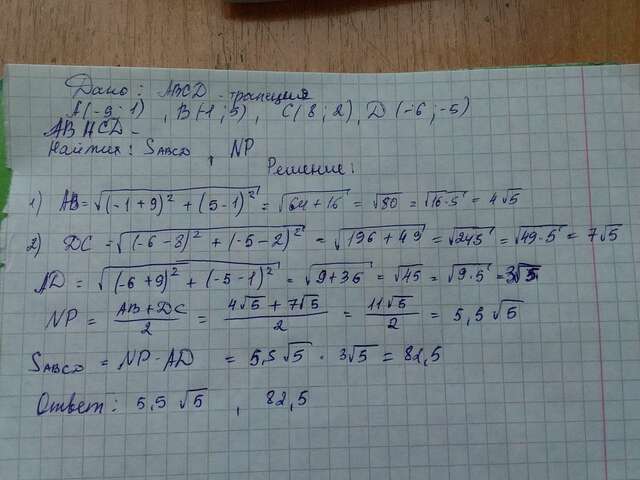 Дано: ABCD - трапеция
A(-9; 1), B(-1; 5), C(8; 2), D(-6; -5)
AB ∥ CD -
Найти: S_ABCD, NP
Решение:
1) AB = √((-1+9)² + (5-1)²) = √(64+16) = √80 = √(16·5) = 4√5
2) DC = √((-6-8)² + (-5-2)²) = √(196+49) = √245 = √(49·5) = 7√5
AD = √((-6+9)² + (-5-1)²) = √(9+36) = √45 = √(9·5) = 3√5
NP = (AB+DC)/2 = (4√5+7√5)/2 = 11√5/2 = 5,5√5
S_ABCD = NP·AD = 5,5√5 · 3√5 = 82,5
Ответ: 5,5√5, 82,5